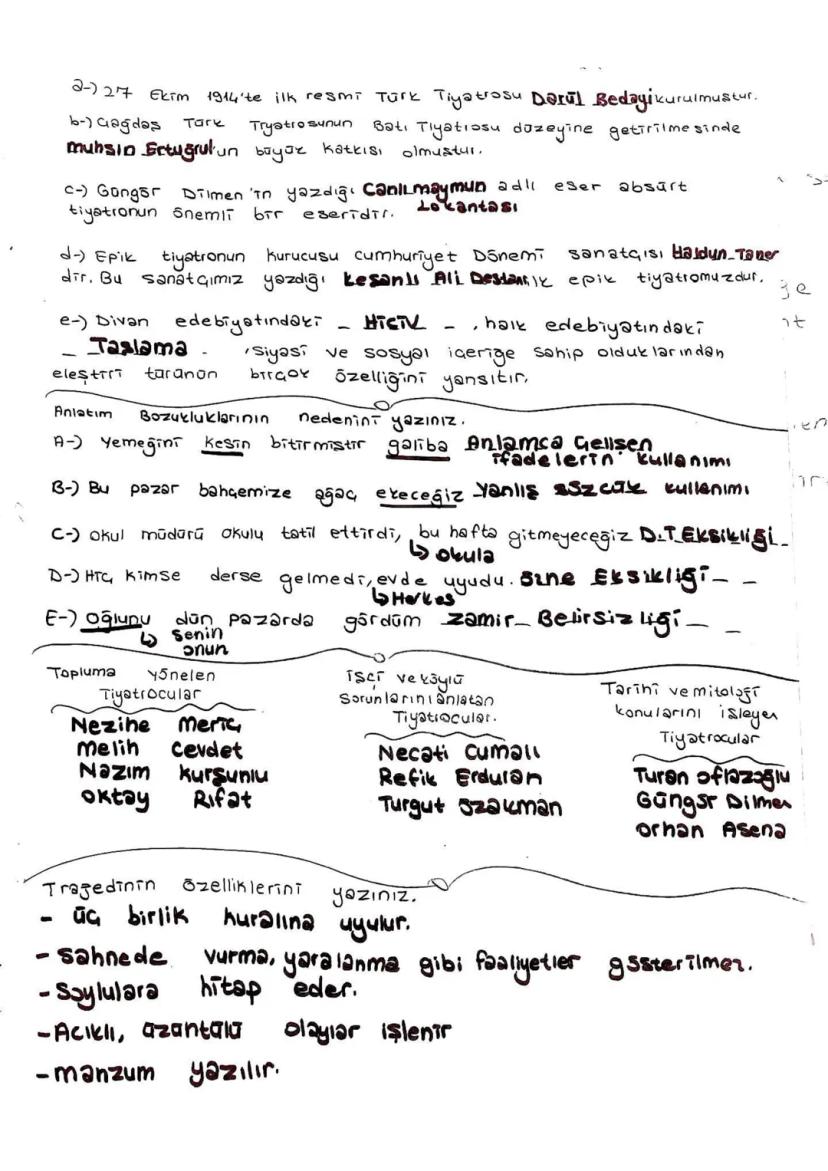 a-) 27 Ekim 1914'te ilk resmi Türk Tiyatrosu Darül Bedayi kurulmuştur.
b-) Çağdaş Türk Tiyatrosunun Batı Tiyatrosu düzeyine getirilmesinde
Muhsin Ertuğrul'un büyük katkısı olmuştur.
c-) Güngör Dilmen'in yazdığı Canlı maymun adlı eser absürt
tiyatronun önemli bir eseridir. Lokantası
d-) Epik tiyatronun kurucusu cumhuriyet Dönemi sanatçısı Haldun Taner
dir. Bu sanatçımız yazdığı Keşanlı Ali Destanı ilk epik tiyatromuzdur.
e-) Divan edebiyatındaki - HİCİV - , halk edebiyatındaki
- Taşlama - , siyasi ve sosyal içeriğe sahip olduklarından
eleştiri türünün birçok özelliğini yansıtır.
Anlatım Bozukluklarının nedenini yazınız.
A-) Yemeğini kesin bitirmiştir galiba Anlamca Çelişen
ifadelerin kullanımı
B-) Bu pazar bahçemize ağaç ekeceğiz Yanlış sözcük kullanımı
C-) Okul müdürü okulu tatil ettirdi, bu hafta gitmeyeceğiz D.T Eksikliği
↳ okula
D-) Hiç kimse derse gelmedi, evde uyudu. Özne Eksikliği - -
↳ Herkes
E-) Oğlunu dün pazarda gördüm zamir - Belirsizliği - -
↳ senin
onun
Topluma Yönelen
Tiyatrocular
Nezihe Meriç
Melih Cevdet
Nazım Kurşunlu
Oktay Rıfat
İşçi ve köylü
Sorunlarını anlatan
Tiyatrocular.
Necati Cumalı
Refik Erduran
Turgut Özakman
Tarihi ve mitoloji
konularını işleyen
Tiyatrocular
Turan Oflazoğlu
Güngör Dilmen
Orhan Asena
Tragedinin Özelliklerini yazınız.
- Üç birlik kuralına uyulur.
- Sahnede vurma, yaralanma gibi faaliyetler gösterilmez.
- Soylulara hitap eder.
- Acıklı, üzüntülü olaylar işlenir
- manzum yazılır.